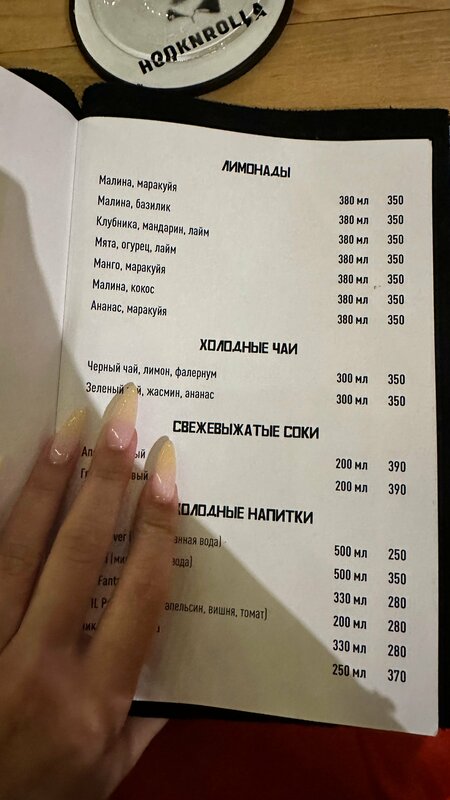 HOOKNROLLA
ЛИМОНАДЫ
Малина, маракуйя 380 мл 350
Малина, базилик 380 мл 350
Клубника, мандарин, лайм 380 мл 350
Мята, огурец, лайм 380 мл 350
Манго, маракуйя 380 мл 350
Малина, кокос 380 мл 350
Ананас, маракуйя 380 мл 350
ХОЛОДНЫЕ ЧАИ
Черный чай, лимон, фалернум 300 мл 350
Зеленый жасмин, ананас 300 мл 350
СВЕЖЕВЫЖАТЫЕ СОКИ
200 мл 390
200 мл 390
ХОЛОДНЫЕ НАПИТКИ
500 мл 250
вода) 500 мл 350
330 мл 280
апельсин, вишня, томат) 200 мл 280
330 мл 280
250 мл 370